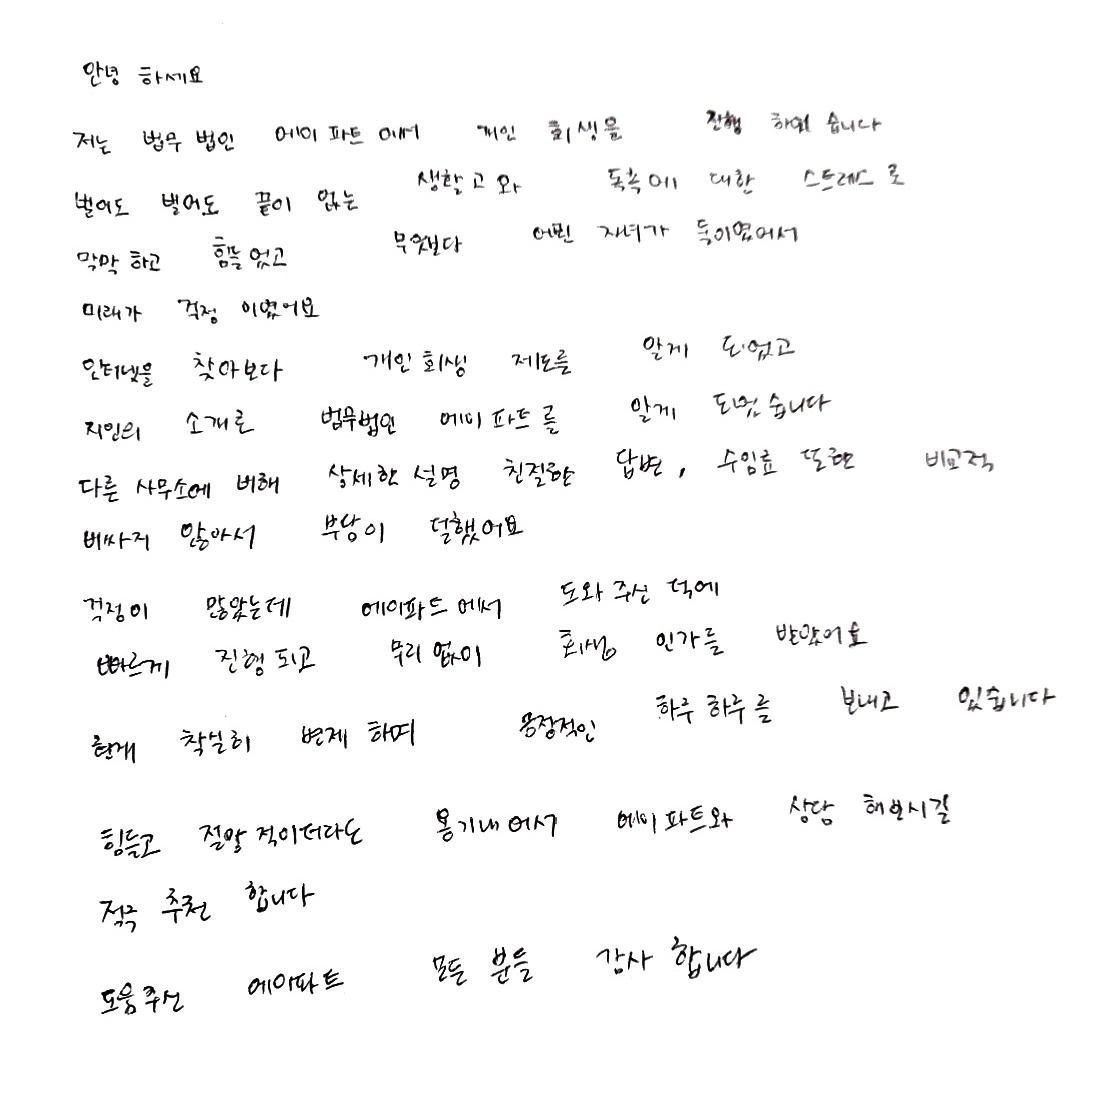 안녕 하세요
저는 법무 법인 에이 파트 에서 개인 회생을 진행 하였 습니다
벌어도 벌어도 끝이 없는 생활 고 와 독촉에 대한 스트레스 로
막막 하고 힘들 었고 무엇보다 어린 자녀가 둘이였어서
미래가 걱정 이였어요
인터넷을 찾아보다 개인 회생 제도를 알게 되었고
지인의 소개로 법무법인 에이 파트 를 알게 되었 습니다
다른 사무소에 비해 상세한 설명 친절한 답변 , 수임료 또한 비교적
비싸지 않아서 부담이 덜했어요
걱정이 많았는데 에이파트 에서 도와 주신 덕에
빠르게 진행 되고 무리 없이 회생 인가를 받았어요
현재 착실히 변제 하며 긍정적인 하루 하루 를 보내고 있습니다
힘들고 절망 적이더라도 용기내 어서 에이 파트와 상담 해보시길
적극 추천 합니다
도움주신 에이파트 모든 분들 감사 합니다